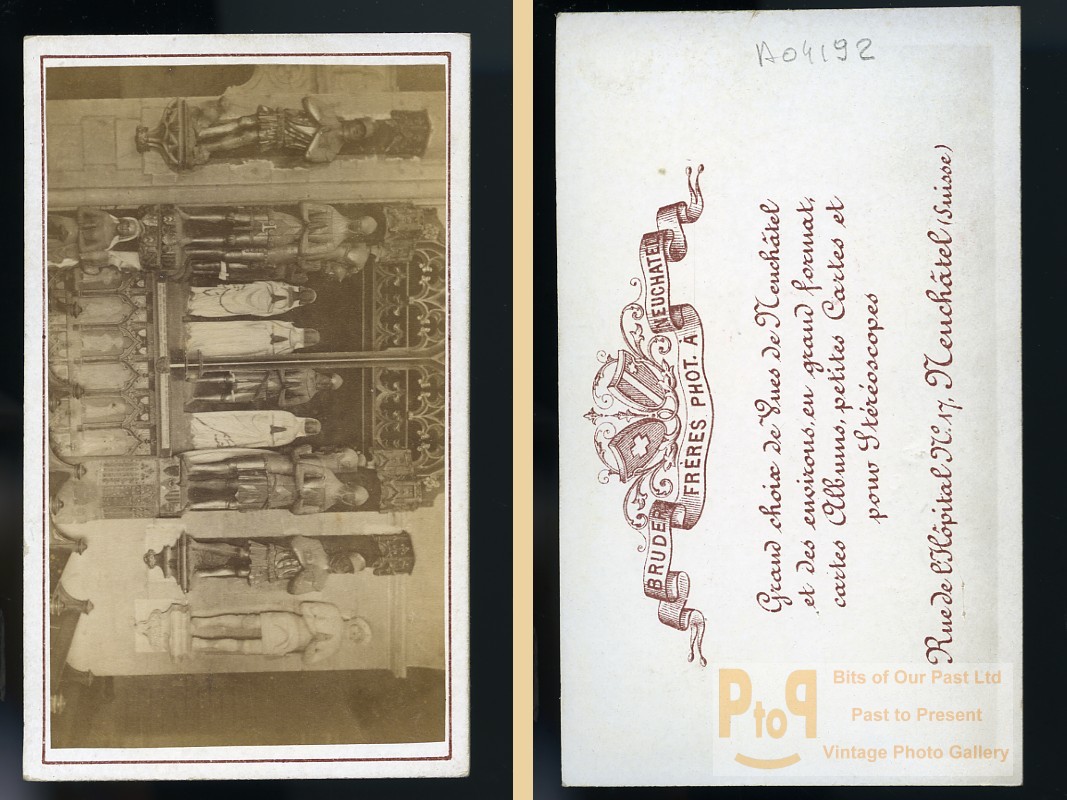 A04192
BRUDER FRÈRES PHOT. A NEUCHATEL
Grand choix de Vues de Neuchâtel
et des environs, en grand format,
cartes Albums, petites Cartes et
pour Stéréoscopes
Rue de l'Hôpital No. 17, Neuchâtel (Suisse)
PtoP
Bits of Our Past Ltd
Past to Present
Vintage Photo Gallery